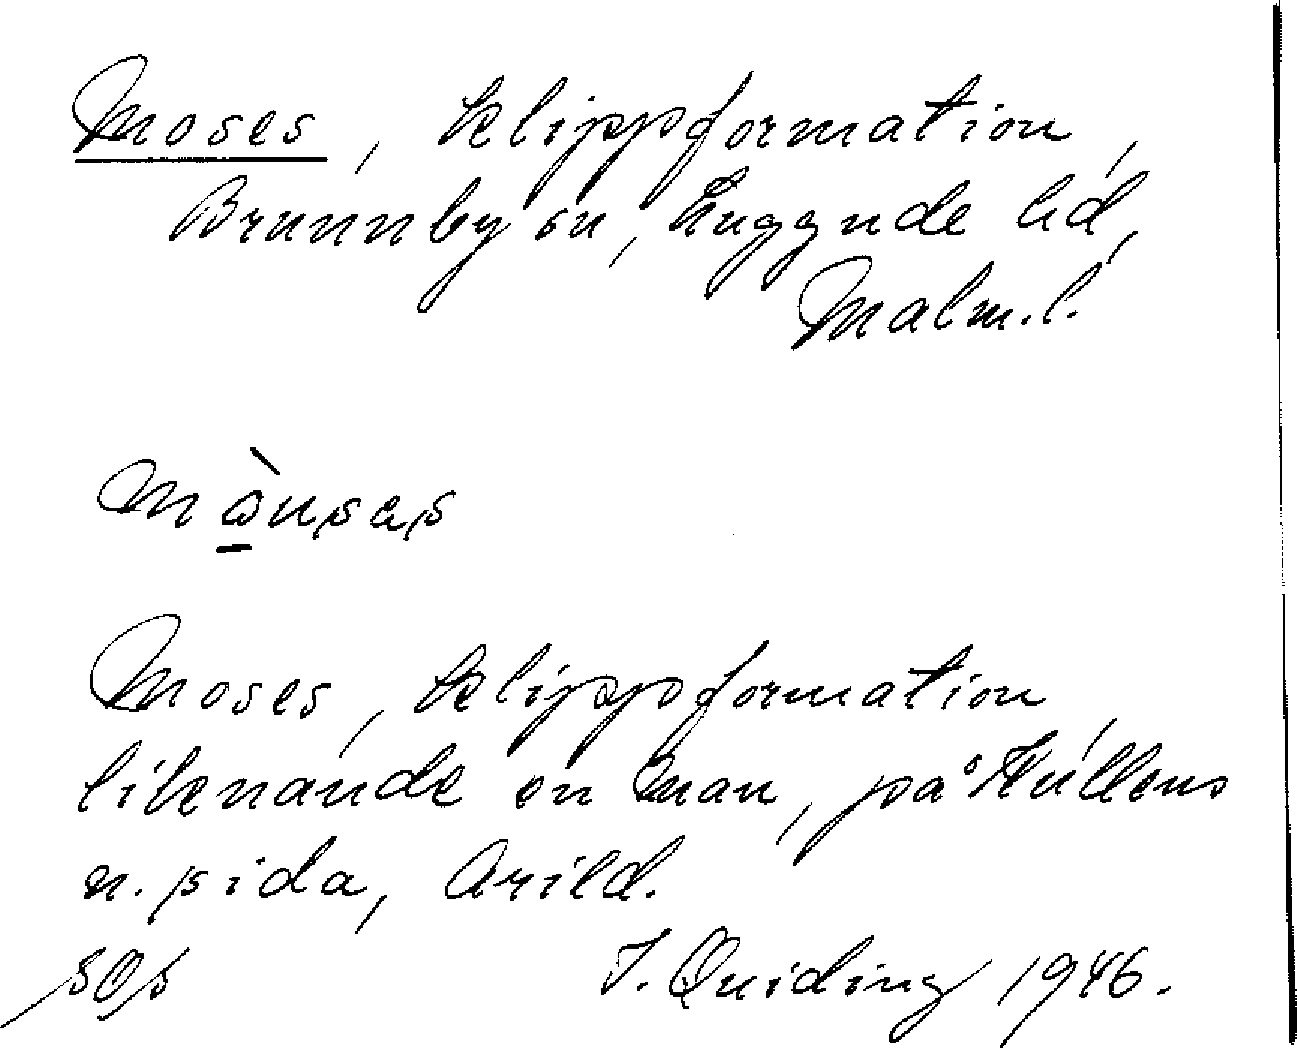 Moses, klippformation,
Brunnby sn, Luggude hd,
Malm. l.
Moses, klippformation
liknande en man, på Kullens
n. sida, Arild.
I. Quiding 1946.